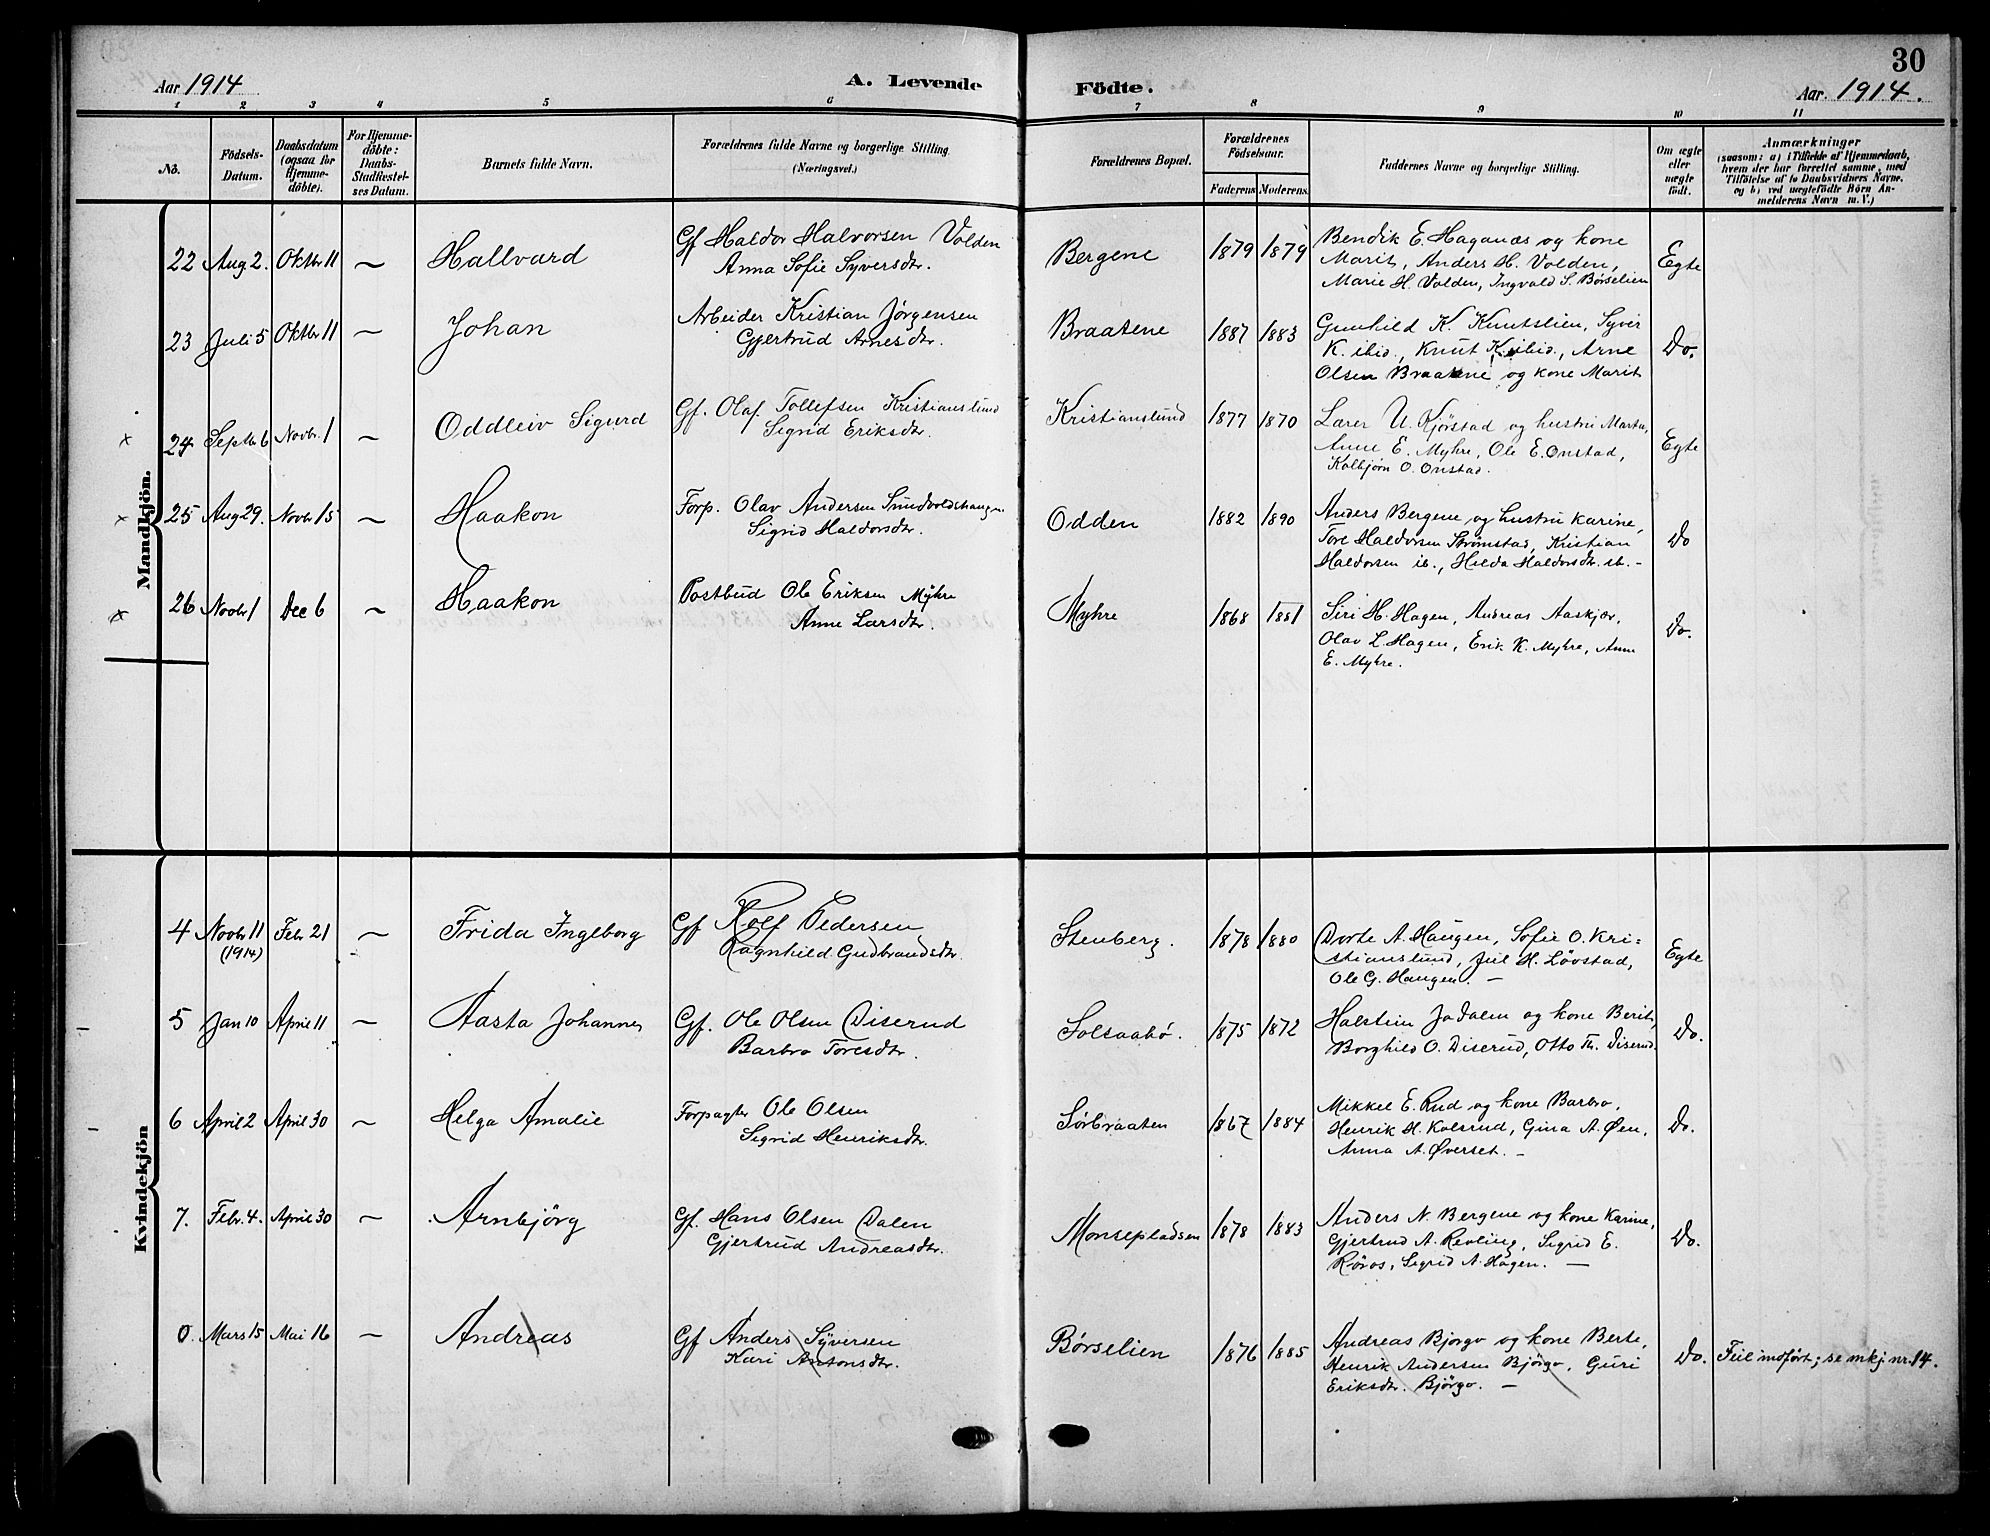 30
Aar 1914
A. Levende
Födte.
Aar. 1914.
1 2 3 4 5 6 7 8 9 10 11
No.
Födsels-Datum.
Daabsdatum (ogsaa for Hjemme-döbte).
For Hjemme-döbte: Daabs-Stadfæstel-ses Datum.
Barnets fulde Navn.
Forældrenes fulde Navne og borgerlige Stilling. (Næringsvei.)
Forældrenes Bopæl.
Forældrenes Födselsaar.
Faderens Moderens
Faddernes Navne og borgerlige Stilling.
Om ægte eller uægte födt.
Anmærkninger
(saasom: a) i Tilfælde af Hjemmedaab, hvem der har forrettet samme, med Tilföielse af to Daabsvidners Navne, og b) ved uægtefödte Börn An-melderens Navn m. V.)
Mandkjön.
22 Aug 2. Oktbr 11 — Hallvard Gf Haldor Halvorsen Volden
Anna Sofie Syversdtr.
Bergene 1879 1879 Bendik E. Haganæs og kone
Marit, Anders H. Volden,
Marie H. Volden, Ingvald S. Børselien
Egte
23 Juli 5 Oktbr 11 — Johan Arbeider Kristian Jørgensen
Gjertrud Arnesdtr.
Braatene 1887 1883 Gunhild K. Knutslien, Syver
K. ibid., Knut K. ibid., Arne
Olsen Braatene og kone Marit
Do.
x 24 Septbr 6 Novbr. 1 — Oddleiv Sigurd Gf. Olaf Tollefsen Kristianslund
Sigrid Eriksdtr.
Kristianslund 1877 1870 Lærer U. Kjørstad og hustru Marta,
Anne E. Myhre, Ole E. Onstad,
Kolbjørn O. Onstad.
Egte
x 25 Aug 29. Novbr 15 — Haakon Forp. Olav Andersen
Sigrid Haldorsdtr.
Odden 1882 1890 Anders Bergene og hustru Karine,
Tore Haldorsen Strømstad, Kristian
Haldorsen ib., Hilda Haldorsdtr. ib. -
Do
x 26 Novbr 1 Dec 6 — Haakon Postbud Ole Eriksen Myhre
Anne Larsdtr.
Myhre 1868 1881 Siri H. Hagen, Andreas Aaskjær,
Olav L. Hagen, Erik K. Myhre, Anne
E. Myhre.
Do.
Kvindekjön
4 Novbr 11 Febr 21 — Frida Ingeborg Gf Rolf Pedersen
(1914)
Ragnhild Gudbrandsdtr.
Stenberg. 1878 1880 Dorte A. Haugen, Sofie O. Kri=
stianslund, Juil H. Løvstad,
Ole G. Haugen. —
Egte
5 Jan 10 April 11 — Aasta Johanne Gf. Ole Olsen Diserud
Barbro Toresdtr.
Solsaabø. 1875 1872 Halstein Jodalen og kone Berit,
Borghild O. Diserud, Otto Th. Diserud.
Do.
6 April 2 April 30 — Helga Amalie Forpagter Ole Olsen
Sigrid Henriksdtr.
Sørbraaten 1867 1884 Mikkel E. Rud og kone Barbro,
Henrik H. Kolsrud, Gina A. Øen,
Anna A. Øverset. -
Do.
7. Febr. 4. April 30 — Arnbjörg Gf. Hans Olsen Dalen
Gjertrud Andreasdtr.
Monsepladsen 1878 1883 Anders N. Bergene og kone Karine,
Gjertrud A. Revling, Sigrid E.
Røros, Sigrid A. Hagen. —
Do.
0. Mars 15 Mai 16 — Andreas Gf Anders Syversen
Kari Antonsdtr.
Børselien 1876 1885 Andreas Bjørgo og kone Berte,
Henrik Andersen Bjørgo, Guri
Eriksdtr. Bjørgo. —
Do. Feil indført; se mkj. nr. 14.